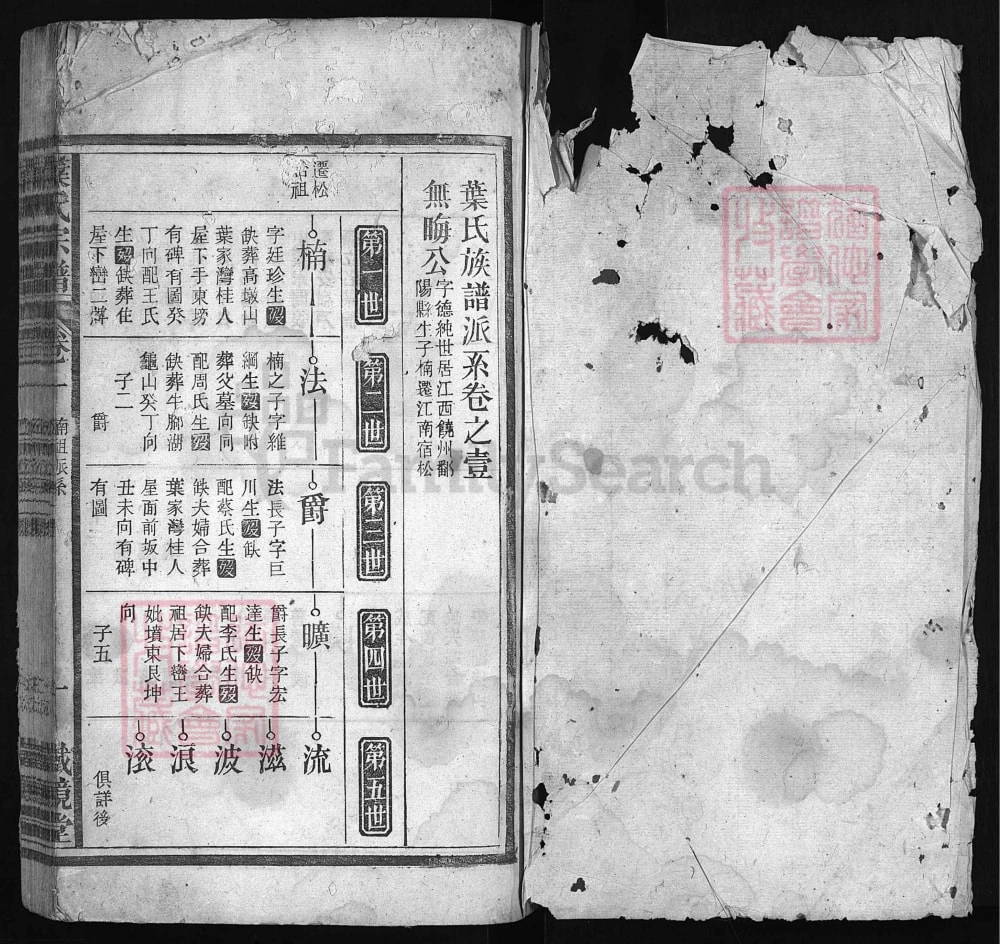 葉氏族譜派系卷之壹
無晦公
字德純世居江西饒州鄱
陽縣生子楠遷江南宿松
第一世
第二世
第三世
第四世
第五世
遷松
始祖
楠
字廷珍生歿
缺葬高墩山
葉家灣桂人
屋下手東塝
有碑有圖癸
丁向配王氏
生歿缺葬住
屋下巒二
法
楠之子字維
綱生歿缺附
葬父墓向同
配周氏生歿
缺葬牛腳湖
龜山癸丁向
子二
爵
爵
法長子字巨
川生歿缺
配蔡氏生歿
缺夫婦合葬
葉家灣桂人
屋面前坂中
丑未向有碑
有圖
曠
爵長子字宏
達生歿缺
配李氏生歿
缺夫婦合葬
祖居下巒王
妣墳東艮坤
向
子五
流
滋
波
浪
滾
俱詳後
葉氏宗譜
卷一
楠祖派系
一
鏡堂
FamilySearch